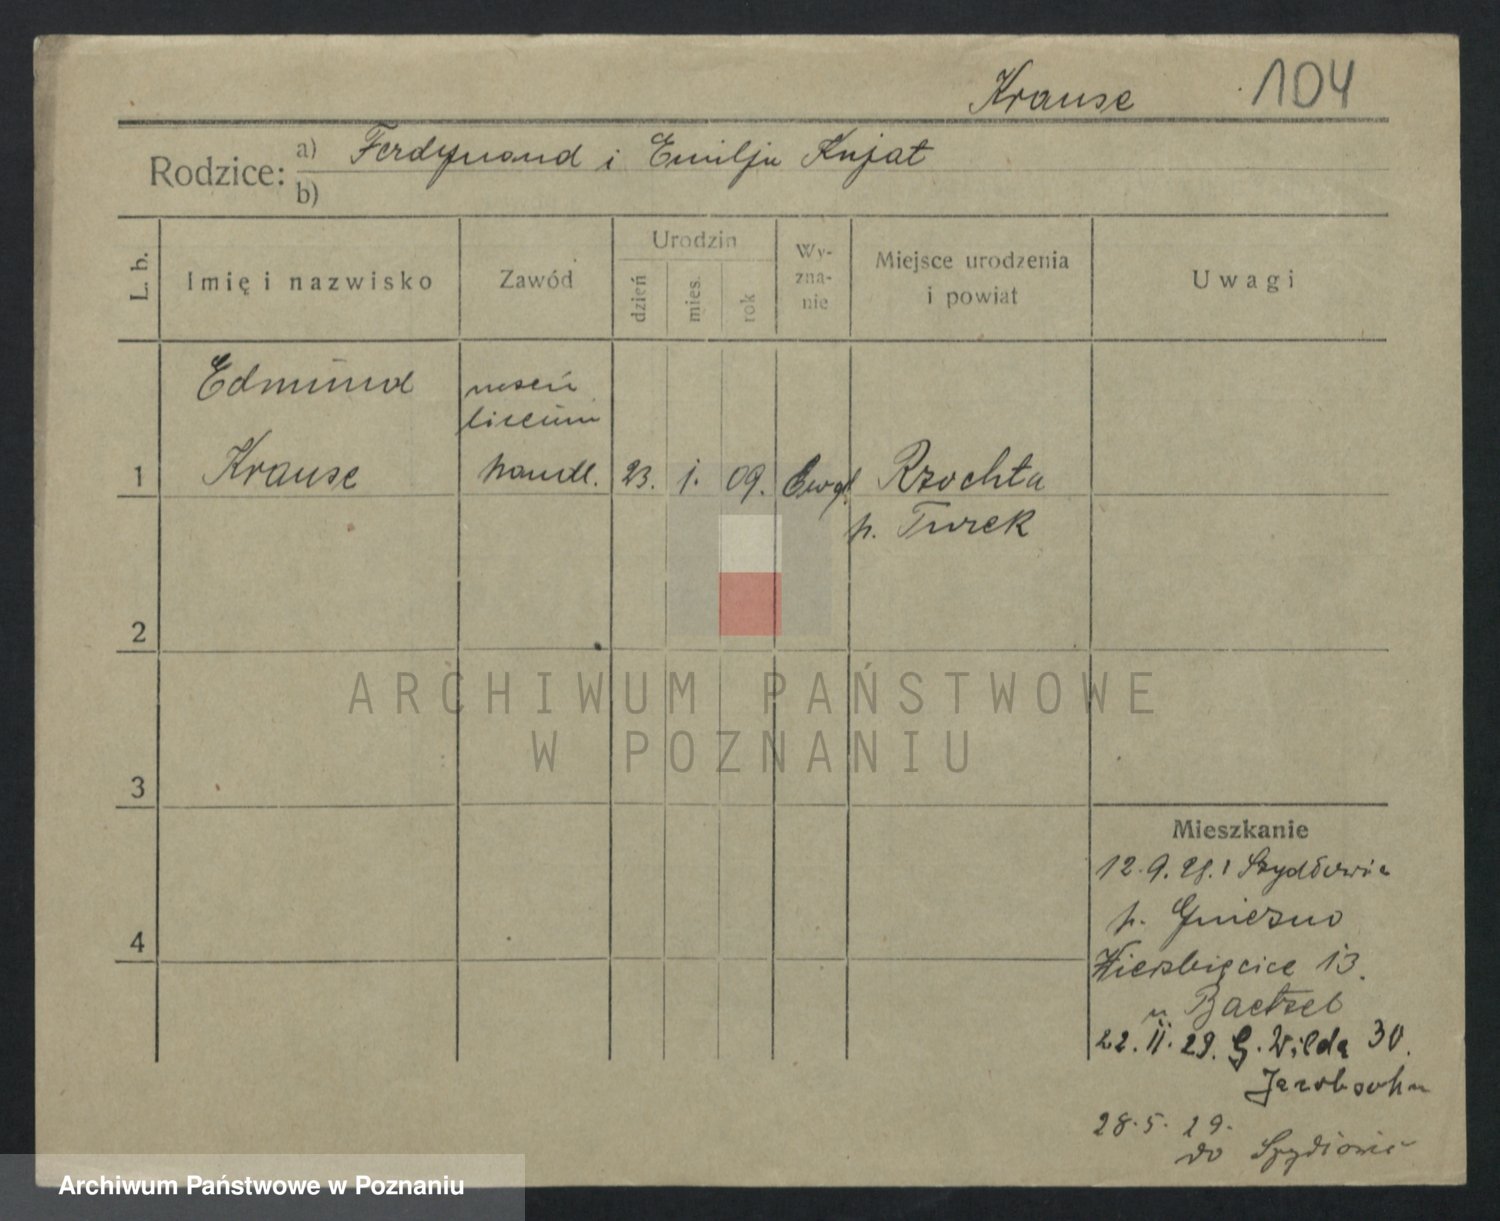 Krause 104
Rodzice: a) Ferdynand i Emilja Kujat
b)
L. b.
Imię i nazwisko
Zawód
Urodzin
dzień
mies.
rok
Wy-
zna-
nie
Miejsce urodzenia
i powiat
Uwagi
Edmund
liceum
1 Krause handl. 23. 1. 09. Ewgl. Rzochta
p. Turek
2
ARCHIWUM PAŃSTWOWE
W POZNANIU
3
Mieszkanie
12.9.28. Szydłowic
p. Gniezno
4
Wierzbięcice 13.
u Baetzel
22.II.29. G. Wilda 30.
Jacobsohn
28.5.29.
do
Archiwum Państwowe w Poznaniu